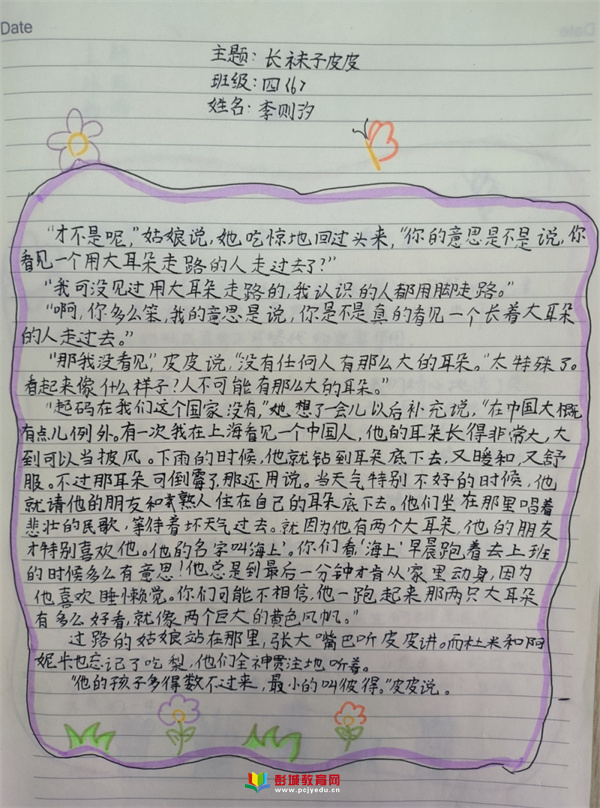 Date
主题：长袜子皮皮
班级：四(6)
姓名：李则汐
“才不是呢，”姑娘说，她吃惊地回过头来，“你的意思是不是说，你
看见一个用大耳朵走路的人走过去了？”
“我可没见过用大耳朵走路的，我认识的人都用脚走路。”
“啊，你多么笨，我的意思是说，你是不是真的看见一个长着大耳朵
的人走过去。”
“那我没看见”，皮皮说，“没有任何人有那么大的耳朵。“太特殊了。
看起来像什么样子？人不可能有那么大的耳朵。”
“起码在我们这个国家没有，”她想了一会儿以后补充说，“在中国大概
有点儿例外。有一次我在上海看见一个中国人，他的耳朵长得非常大，大
到可以当披风。下雨的时候，他就钻到耳朵底下去，又暖和，又舒
服。不过那耳朵可倒霉了，那还用说。当天气特别不好的时候，他
就请他的朋友和熟人住在自己的耳朵底下去。他们坐在那里唱着
悲壮的民歌，等待着坏天气过去。就因为他有两个大耳朵，他的朋友
才特别喜欢他。他的名字叫‘海上’。你们看‘海上’早晨跑着去上班
的时候多么有意思！他总是到最后一分钟才肯从家里动身，因为
他喜欢睡懒觉。你们可能不相信，他一跑起来那两只大耳朵
有多么好看，就像两个巨大的黄色风帆。”
过路的姑娘站在那里，张大嘴巴听皮皮讲。而杜米和阿
妮卡也忘记了吃梨，他们全神贯注地听着。
“他的孩子多得数不过来，最小的叫彼得。”皮皮说。
彭城教育网
www.pcjyedu.cn